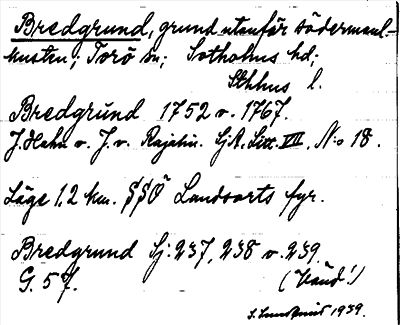 Bredgrund, grund utanför södermanl-
kusten; Torö sn; Sotholms hd;
Sthlms l.
Bredgrund 1752 o. 1767.
J. Hahn o. J. v. Rajalin. SjA, Litt. VII, N:o 18.
Läge 1,2 km. SSO Landsorts fyr.
Bredgrund Sj: 237, 238 o. 239.
G. 57.
(Känd!)
1939.